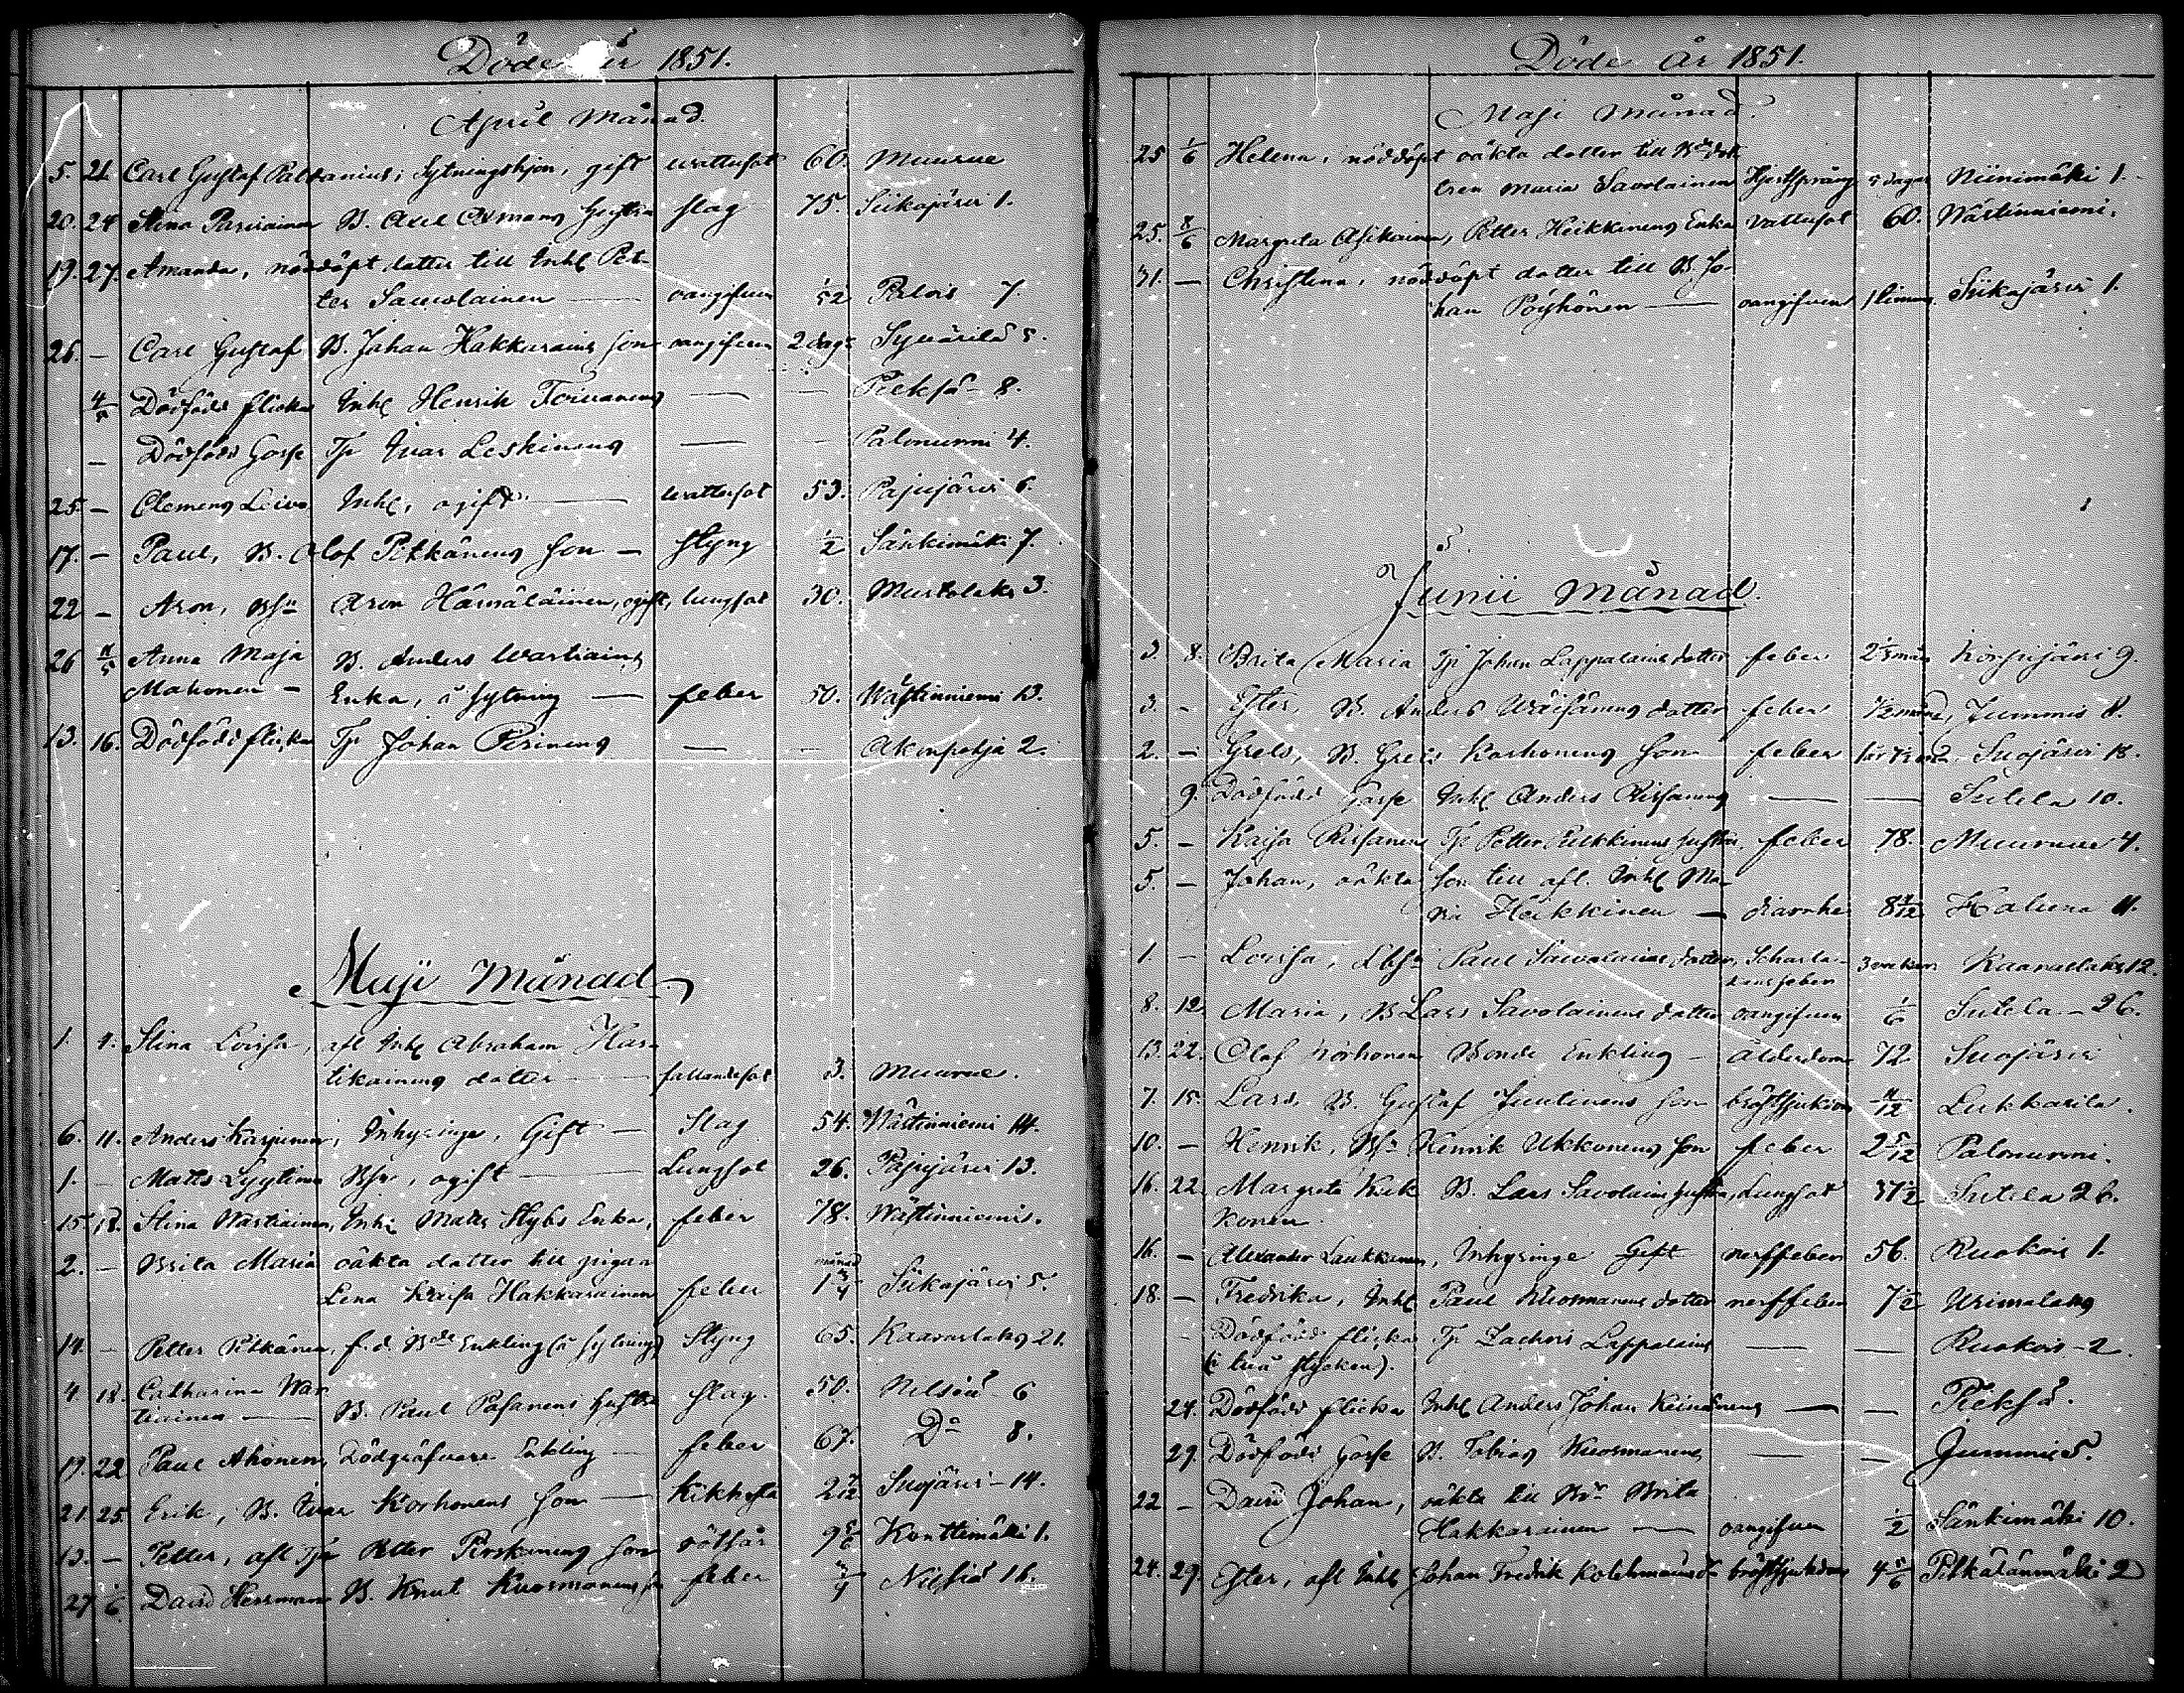 Döde år 1851.
April Månad.
5. 21. Carl Gustaf Paldanius, Sytningshjon, gift wattusot 60. Muurue
20. 24 Stina B. Axel Hustru slag 75. Siikajärvi 1.
19. 27. Amanda, nöddöpt dotter till Inhs Pet-
ter Sawolainen — oangifven 1/52 Palois 7.
26. — Carl Gustaf B. Johan Hakkarains son oangifven 2 dag. Sywärilä 5.
4/5 Dödfödd flicka Inhs Henrik Toivanens — — Pieksä 8.
— Dödfödd Gosse Tp Ivar Leskinens — — Palonurmi 4.
25. — Clemens Leivo Inhs, ogift — wattusot 53. Pajujärvi 6.
17. — Paul, B. Olof Pitkänens son — styng 1/2 Sänkimäki 7.
22 — Aron, Bsn Aron Hämäläinen, ogift, lungsot 30. Murtolaks 3.
26 11/5 Anna Maja B. Anders Wartiains
Makonen — Enka, å sytning — feber 50. Wästinniemi 13.
13. 16. Dödfödd flicka Tp Johan Pirinens — — Akonpohja 2.
Maji Månad
1. 4. Stina Loisa, afl Inhs Abraham Har-
tikainens dotter — fallandesot 3. Muurue.
6. 11. Anders Karjunen, Inhysinge, Gift — Slag 54. Wästinniemi 14.
1. — Matts Lyytinen Bsn, ogift — Lungsot 26. Pajujärvi 13.
15. 18. Stina Wartiainen, Inhs Matts Hybs Enka, feber 78. Wästinniemi.
2. — Brita Maria oäkta dotter till pigan månad
Lena Kaisa Hakkarainen feber 1 3/4 Siikajärvi 5.
14. — Petter Pitkänen, f.d. Bde Enkling (å sytning) Styng 65. Kaavarlaks 21.
4 18. Catharina War-
tiainen — B. Paul Pasanens hustru slag. 50. Nilsiä 6
19. 22 Paul Ahonen, Dödgräfvare Enkling — feber 67. Do 8.
21. 25. Erik, B. Ivar Korhonens son — Kikhosta 2 Suojärvi 14.
13. — Petter, afl Tp Petter Pirskanens son rötsår 9 5/6 Konttimäki 1.
27 1/6 David Herrman B. Knut Kuosmanens son feber 3/4 Nilsiä 16.
Döde År 1851.
Maji Månad.
25 1/6 Helena, nöddöpt oäkta dotter till Bdedot-
tren Maria Savolainen Hjertsprång 5 dagar Niinimäki 1.
25. 8/6 Margreta Asikainen, Petter Heikkinens Enka vattusot 60. Wästinniemi.
31. — Christina, nöddöpt dotter till B. Jo-
han Pöyhönen — oangifven 1 timma Siikajärvi 1.
Junii Månad.
3. 8. Brita Maria Tp Johan Lappalains dotter feber 2 mån Korpijärvi 9.
3. — Ester, B. Anders Wäisänens dotter feber 1/2 månad, Jummis 8.
2. — Grels, B. Grels Korhonens son feber Suojärvi 18.
9. Dödfödd Gosse Inhs Anders Rissanens — — Sutela 10.
5. — Kaisa Rissanen Tp Petter Pulkkinens hustru, feber 78. Muurue 4.
5. — Johan, oäkta son till afl. Inhs Ma-
ria Heikkinen — diarrhe 8 Haluna 11.
1. — Lovisa, Paul Sawolains dotter, Scharla-
kansfeber 3 veckor Kaavarlaks 12.
8. 12. Maria, B Lars Savolainens dotter oangifven 1/6 Sutela 26.
13. 22. Olof Korhonen Bonde Enkling — ålderdom 72. Suojärvi
7. 15. Lars, B. Gustaf Juutinens son bröstsjukdom 11/12 Lukkarila.
10. — Henrik, Bsn Henrik Ukkonens son feber 2 5/12 Palonurmi.
16. 22. Margreta Kek- B. Lars Savolains hustru, Lungsot 37 1/2 Sutela 26.
konen
16. — Alexander Laukkanen, Inhysinge Gift nerffeber 56. Ruokois 1.
18. — Fredrika, Inhs Paul Kuosmanens dotter nerffeber 7 1/2 Urimolaks
— Dödfödd flicka Tp Zachris Lappalains — — Ruokois 2.
(i två stycken).
24. Dödfödd flicka Inhs Anders Johan Keinänens — — Pieksä.
29. Dödfödd Gosse B. Tobias Kuosmanens — — Jummis 5.
22 — David Johan, oäkta till Brita
Hakkarainen — oangifven 1/2 Sänkimäki 10.
24. 29. Ester, afl Inhs Johan Fredrik Kolehmains dr bröstsjukdom 4 5/6 Pitkälänmäki 2